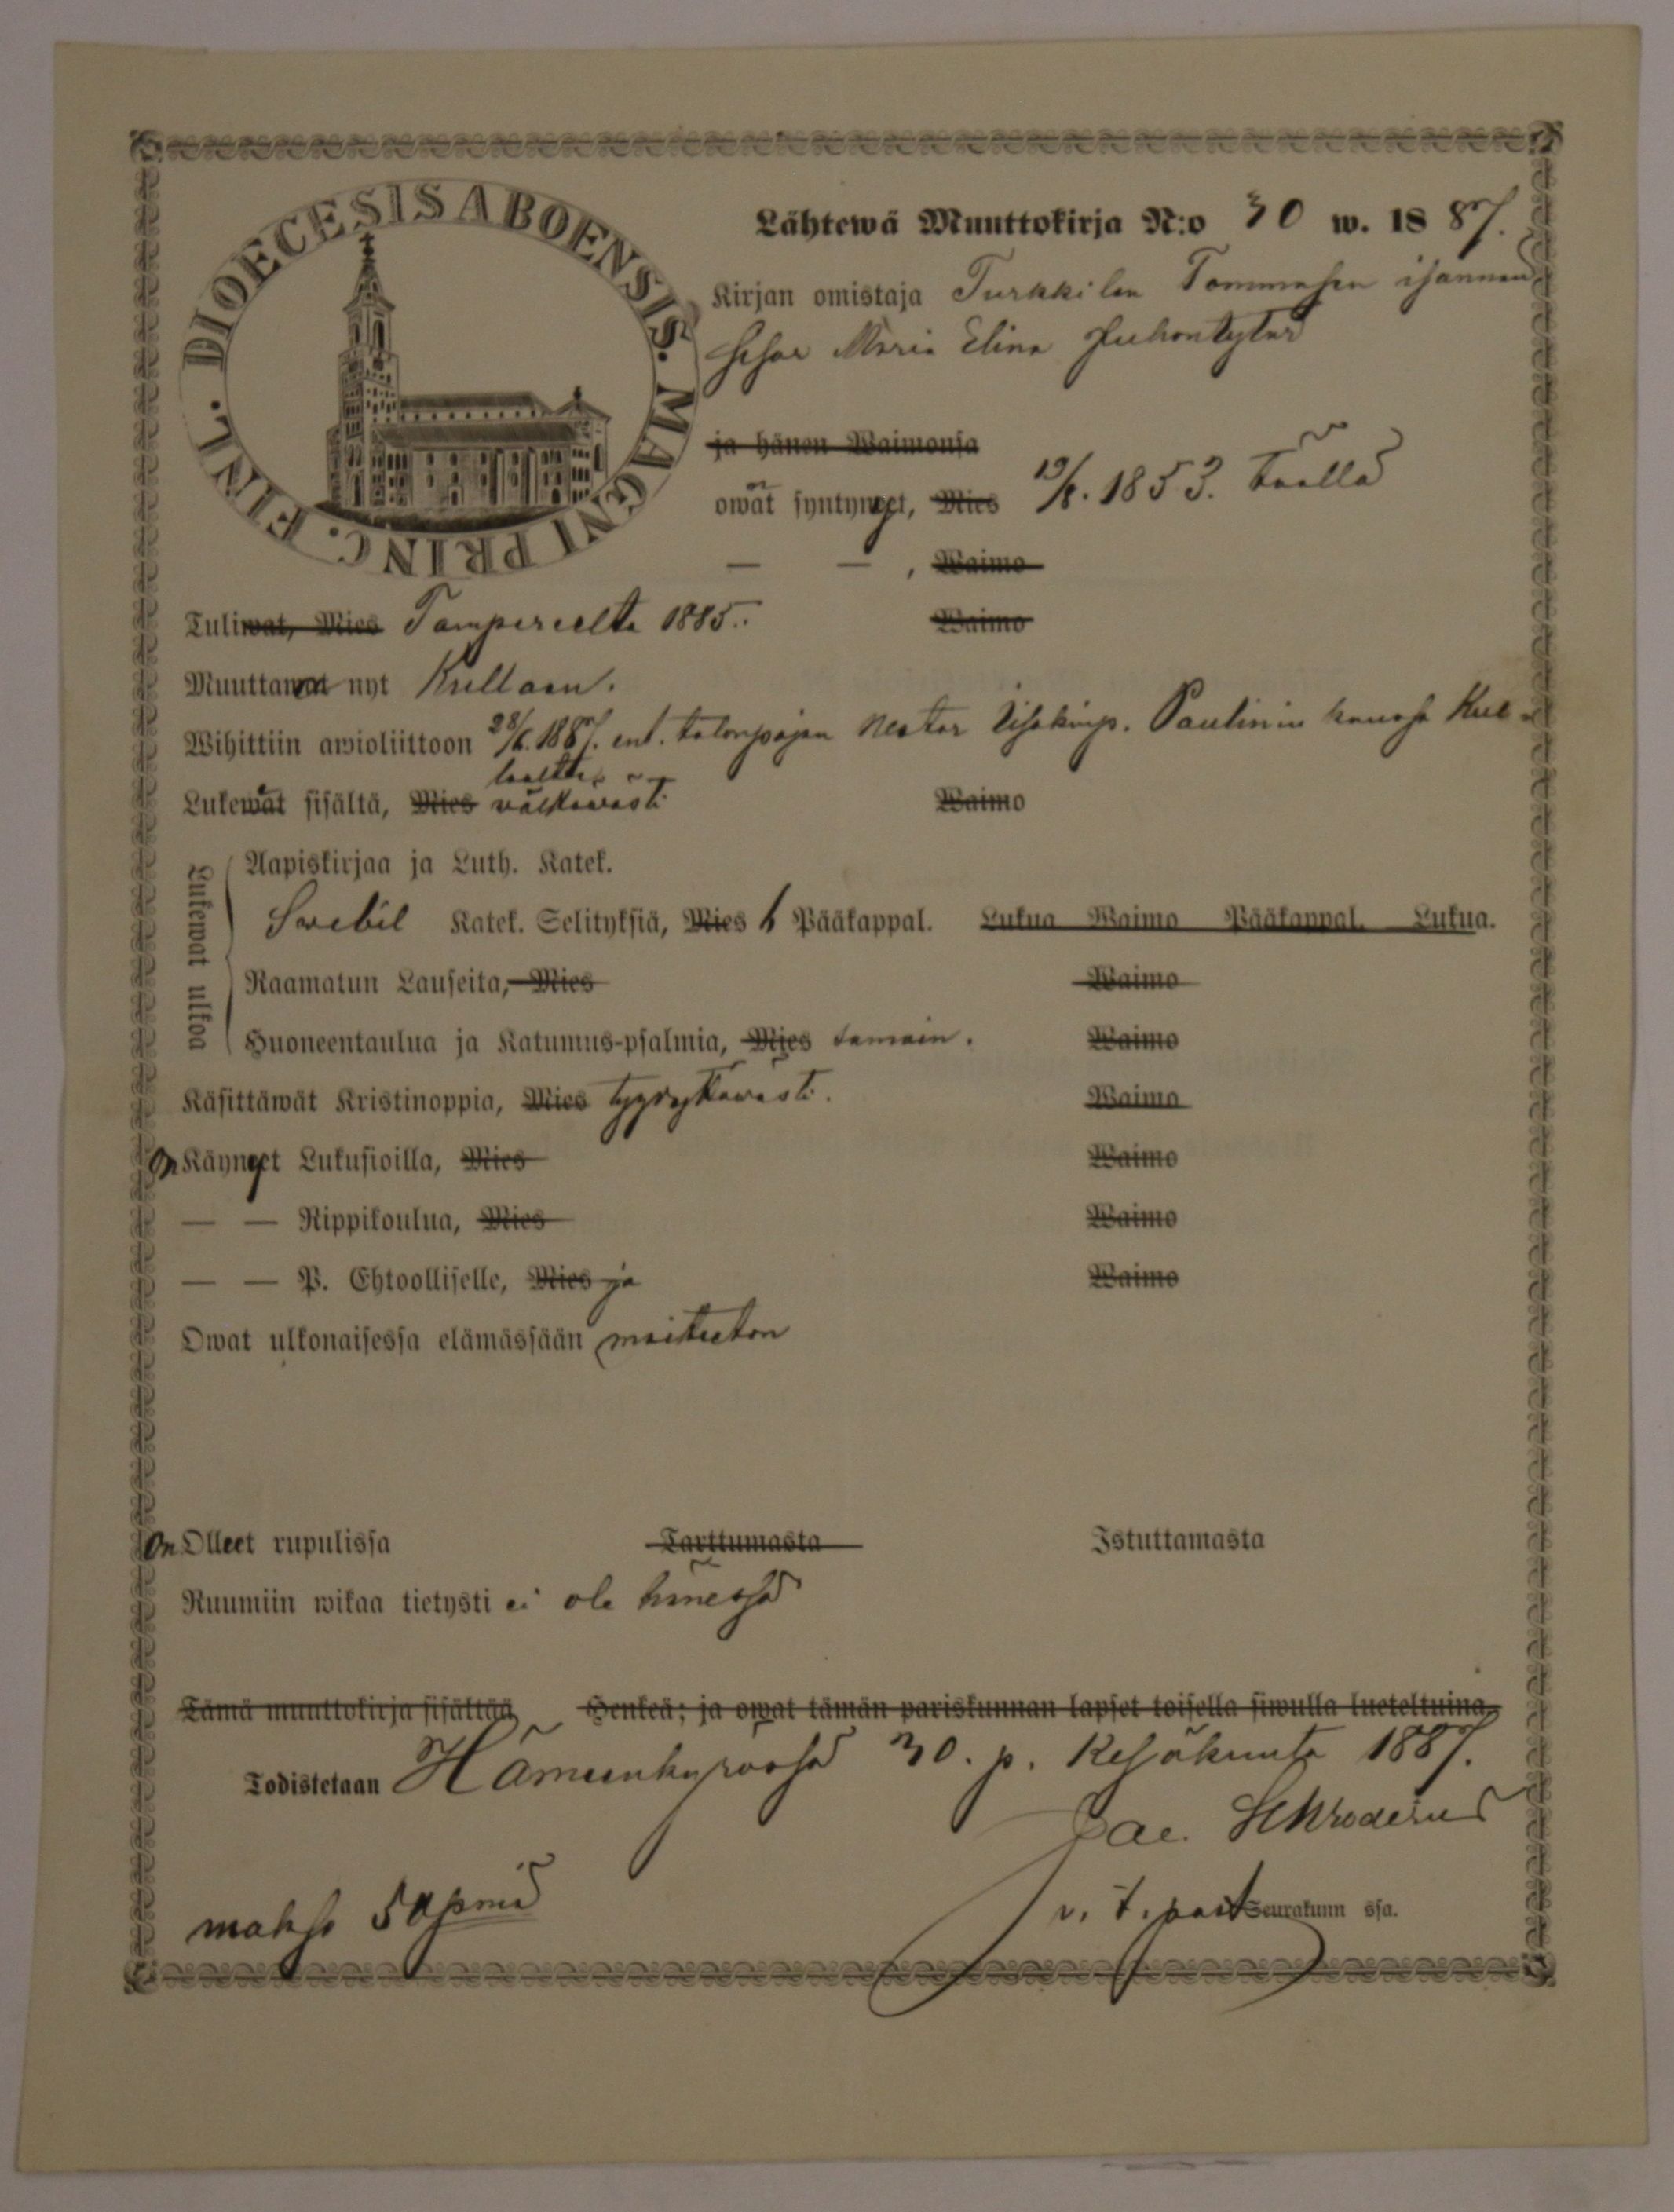 DIOECESIS ABOENSIS. MAGNI PRINC. FINL.
Lähtewä Muuttokirja N:o 30 w. 1887.
Kirjan omistaja Turkkilan Tommolan isännän
sisar Maria Elina Juhontytär
ja hänen Waimonsa
owat syntyneet, Mies 19/8. 1853. täällä
— — , Waimo
Tuliwat, Mies Tampereelta 1885. Waimo
Muuttawat nyt Kullaan.
Wihittiin awioliittoon 28/6. 1887. ent. talonpojan Nestor Paulinin kanssa Kul-
laalta
Lukewat sisältä, Mies välttävästi Waimo
Lukewat ulkoa
Aapiskirjaa ja Luth. Katek.
Swebil Katek. Selityksiä, Mies 6 Pääkappal. Lukua Waimo Pääkappal. Lukua.
Raamatun Lauseita, Mies Waimo
Huoneentaulua ja Katumus-psalmia, Mies samoin. Waimo
Käsittäwät Kristinoppia, Mies tyydyttävästi. Waimo
On Käyneet Lukusioilla, Mies Waimo
— — Rippikoulua, Mies Waimo
— — P. Ehtoolliselle, Mies ja Waimo
Owat ulkonaisessa elämässään moitteeton
On Olleet rupulissa Tarttumasta Istuttamasta
Ruumiin wikaa tietysti ei ole hänessä
Tämä muuttokirja sisältää Henkeä; ja owat tämän pariskunnan lapset toisella siwulla lueteltuina.
Todistetaan Hämeenkyrössä 30. p. Kesäkuuta 1887.
Jac. Schroderus
maksu 50 pniä v. t. past Seurakunn ssa.